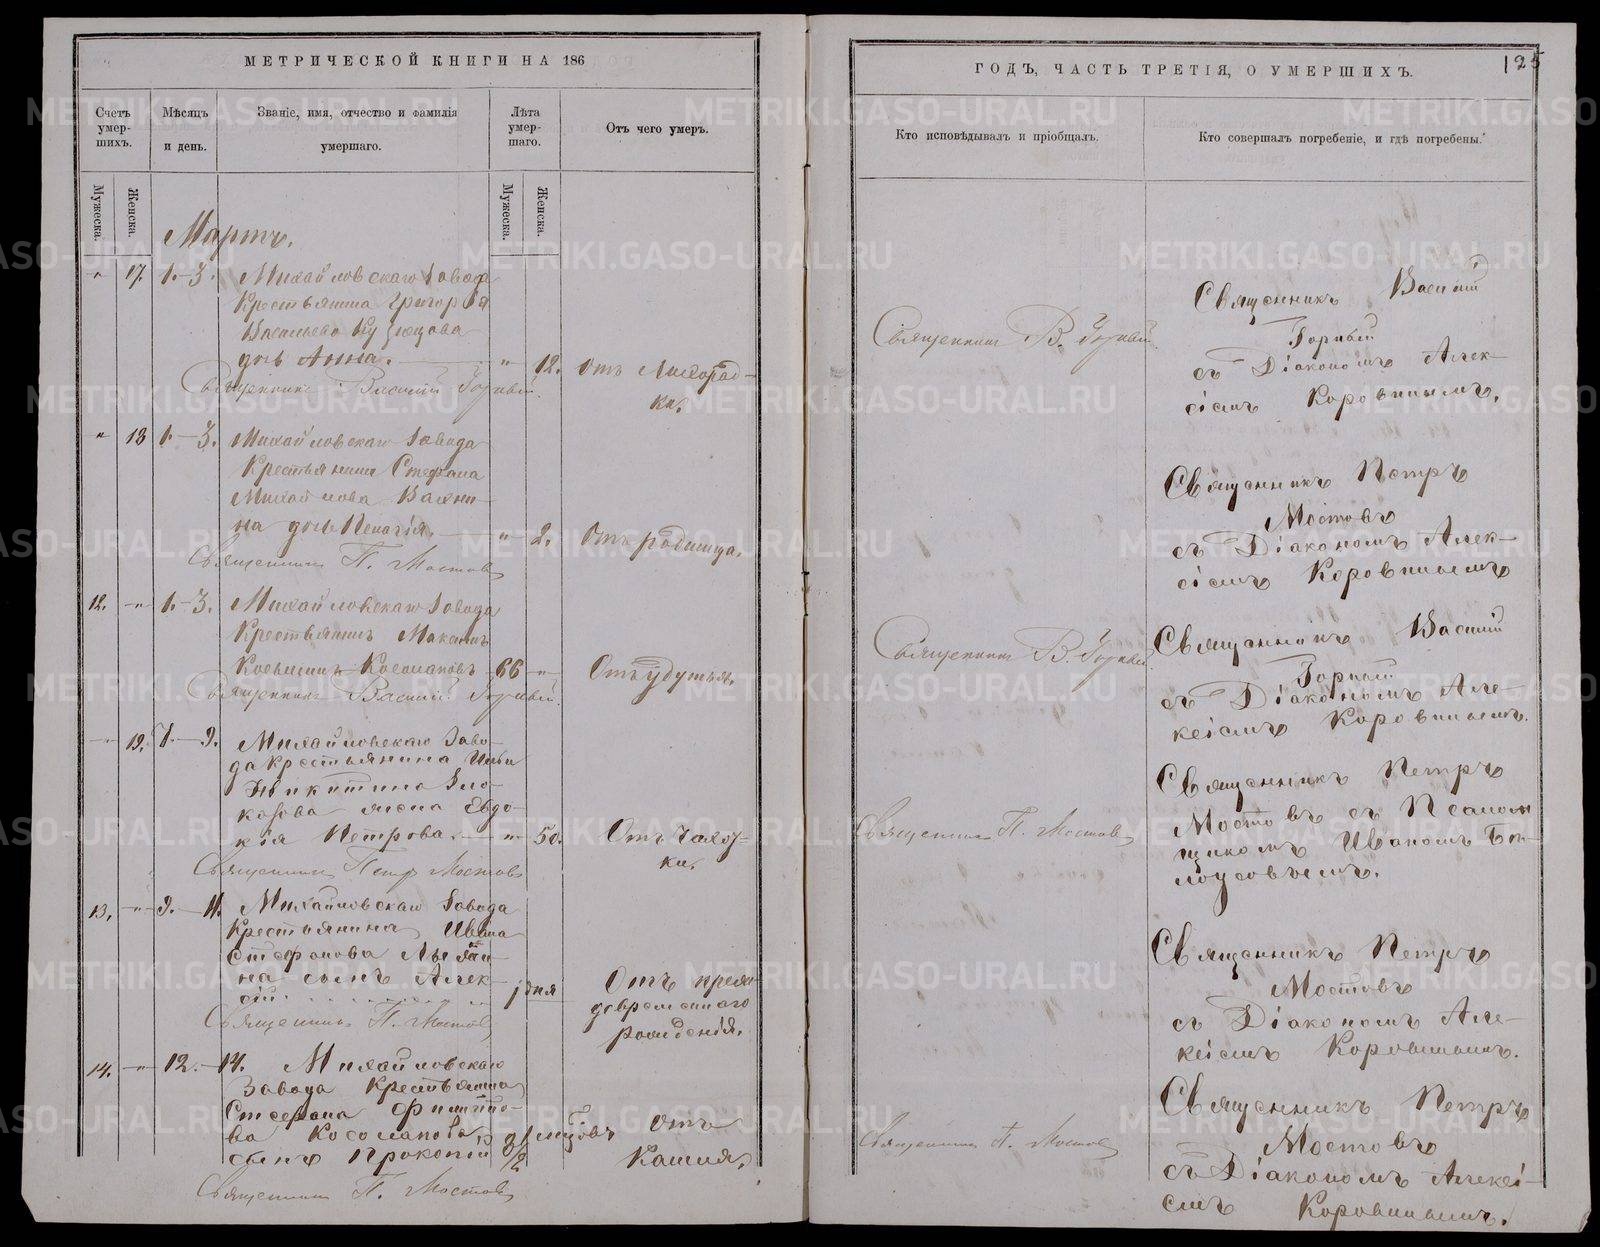 МЕТРИЧЕСКОЙ КНИГИ НА 186
Счетъ умер-шихъ.
Мужеска.
Женска.
Мѣсяцъ и день.
Званіе, имя, отчество и фамилія умершаго.
Лѣта умер-шаго.
Мужеска.
Женска.
Отъ чего умеръ.
Мартъ.
" 17. 1.-3. Михайловскаго Завода
Крестьянина Григорія
Васильева Кузнецова
дочь Анна. " 12. Отъ Лихорад-
ки.
Священникъ Василій Горный.
" 18 1.-3. Михайловскаго Завода
Крестьянина Стефана
Михайлова
на дочь Пелагія. " 2. Отъ родимца.
Священникъ П. Мостовъ
12. -"- 1.-3. Михайловскаго Завода
Крестьянинъ Максимъ
Косьминъ Косолаповъ 66 -"- Отъ удушья.
Священникъ Василій Горный.
-"- 19. 7.-9. Михайловскаго Заво-
да крестьянина Ильи
Никитина Зло-
казова жена Евдо-
кія Петрова. " 50. Отъ Чахот-
ки.
Священникъ Петр Мостовъ
13. -"- 9.-11. Михайловскаго Завода
Крестьянина Ивана
Стефанова
на сынъ Алек-
сій. дня Отъ преж
девременнаго
рожденія.
Священникъ П. Мостовъ
14. -"- 12.-14. Михайловскаго
Завода Крестьянина
Стефана Филиппо-
ва Косолапова
сынъ Прокопій мѣсяцовъ Отъ
Кашля.
Священникъ П. Мостовъ
ГОДЪ, ЧАСТЬ ТРЕТІЯ, О УМЕРШИХЪ.
125
Кто исповѣдывалъ и пріобщалъ.
Кто совершалъ погребеніе, и гдѣ погребены.
Священникъ В. Горный.
Священникъ Василій
Горный
съ Діакономъ Алек-
сіемъ Коровинымъ.
Священникъ Петръ
Мостовъ
съ Діакономъ Алек-
сіемъ Коровинымъ
Священникъ В. Горный.
Священникъ Василій
Горный
съ Діакономъ Але-
ксіемъ Коровинымъ.
Священникъ П. Мостовъ
Священникъ Петръ
Мостовъ съ Псалом
щикомъ Иваномъ Бѣ-
лоусовымъ.
Священникъ Петръ
Мостовъ
съ Діакономъ Але-
ксіемъ Коровинымъ.
Священникъ П. Мостовъ
Священникъ Петръ
Мостовъ
съ Діакономъ Алексі-
емъ Коровинымъ.
METRIKI.GASO-URAL.RU